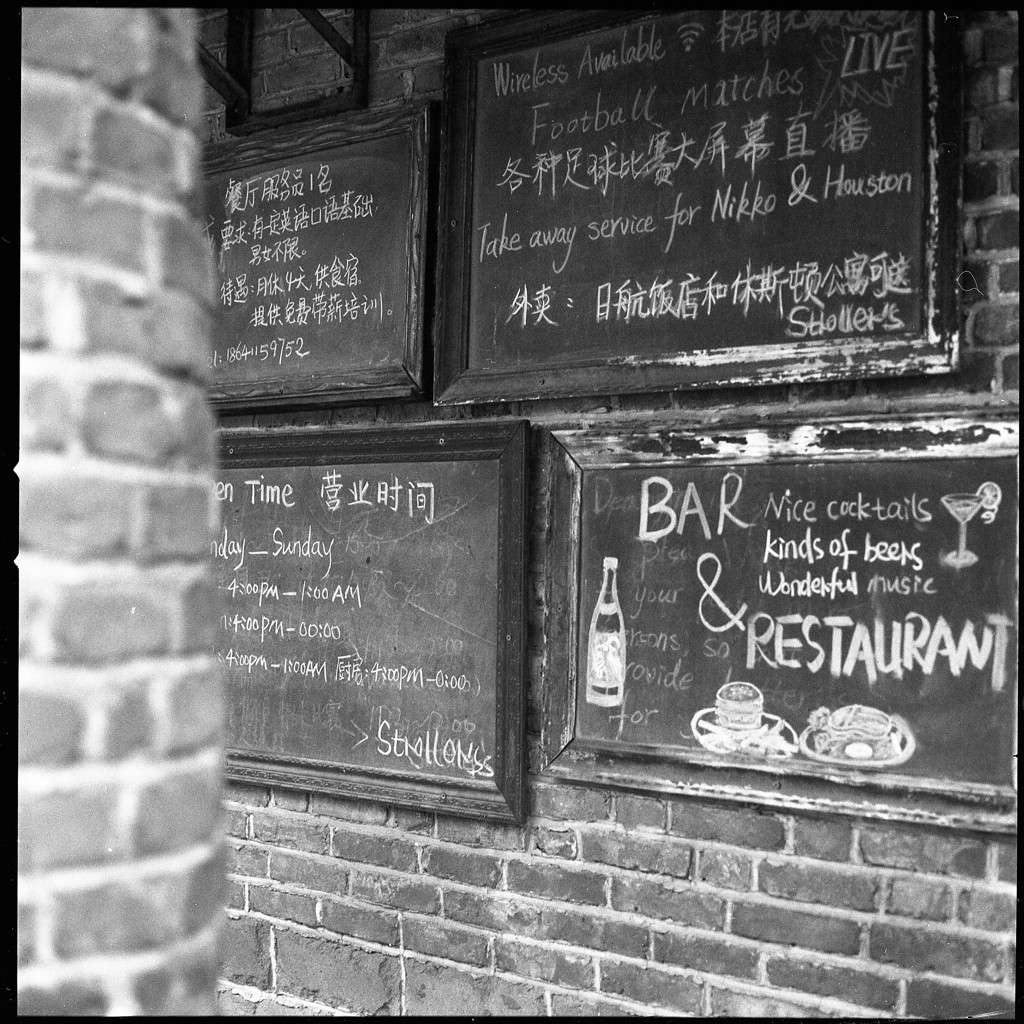 餐厅服务员1名
要求:有一定英语口语基础.
男女不限。
待遇:月休4天,供食宿.
提供免费带薪培训。
18641159752
Wireless Available 本店有
LIVE
Football matches
各种足球比赛大屏幕直播
Take away service for Nikko & Houston
外卖: 日航饭店和休斯顿公寓可送
Stroller's
en Time 营业时间
day—Sunday
4:00pm—1:00AM
4:00pm—00:00
4:00pm—1:00AM 厨房:4:00pm—0:00)
Strollers
BAR
&
RESTAURANT
Nice cocktails
kinds of beers
Wonderful music
your
so
for